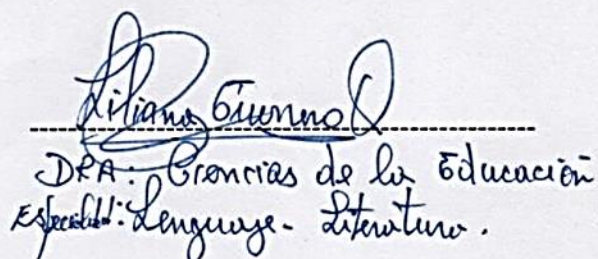 Liliana
DRA: Ciencias de la Educación
Especialid: Lenguaje - Literatura.